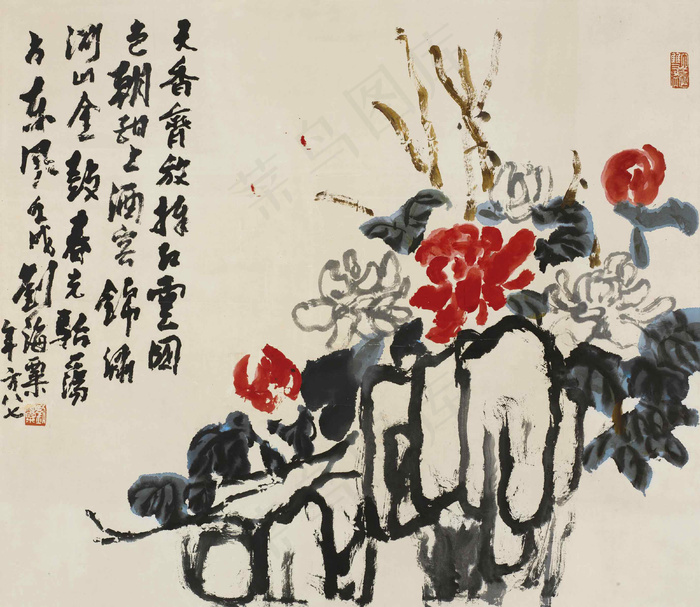 天香齊放捧紅雲國
色朝酣上酒容錦繡
湖山金鼓春光駘蕩
占東風壬戌劉海粟
年方八七
菜鸟图库